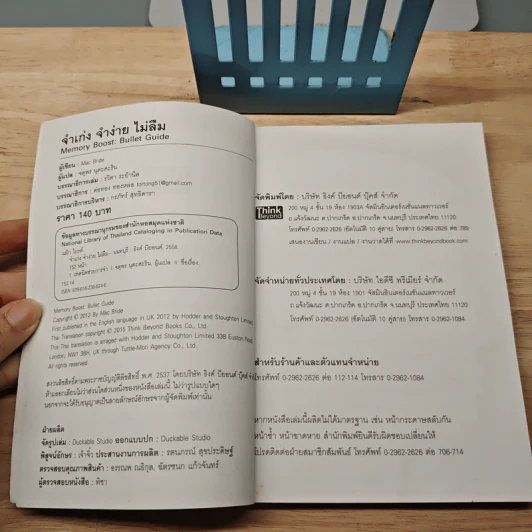 จำเก่ง จำง่าย ไม่ลืม
Memory Boost: Bullet Guide
ผู้เขียน : Mac Bride
ผู้แปล : จตุพร นุตะศะริน
บรรณาธิการเล่ม : รจิดา
บรรณาธิการ : ต่อทอง ทองหล่อ tortong51@gmail.com
บรรณาธิการบริหาร : ทรภัทร์ สุทธิดารา
ราคา 140 บาท
ข้อมูลทางบรรณานุกรมของสำนักหอสมุดแห่งชาติ
National Library of Thailand Cataloging in Publication Data
จำเก่ง จำง่าย ไม่ลืม.--นนทบุรี : ธิงค์ บียอนด์, 2558.
152 หน้า.
Memory Boost: Bullet Guide
Copyright © 2012 By Mac Bride
First published in the English language in UK 2012 by Hodder and Stoughton Limited
Thai Translation copyright © 2015 Think Beyond Books Co., Ltd.
This Thai translation is arraged with Hodder and Stoughton Limited 338 Euston Road,
London, NW1 3BH, UK through Tuttle-Mori Agency Co., Ltd.
All rights reserved.
สงวนลิขสิทธิ์ตามพระราชบัญญัติลิขสิทธิ์ พ.ศ. 2537 โดยบริษัท ธิงค์ บียอนด์ บุ๊คส์ จำกัด
ห้ามลอกเลียนไม่ว่าส่วนใดส่วนหนึ่งของหนังสือเล่มนี้ ไม่ว่ารูปแบบใดๆ
นอกจากจะได้รับอนุญาตเป็นลายลักษณ์อักษรจากผู้จัดพิมพ์เท่านั้น
ฝ่ายผลิต
จัดรูปเล่ม : Duckable Studio ออกแบบปก : Duckable Studio
พิสูจน์อักษร : เจ้าจิ๋ว ประสานงานการผลิต : รตนภรณ์ สุขประดิษฐ์
ตรวจสอบคุณภาพสินค้า : อรรณพ ณธิกุล, ฉัตรชนก แก้วจันทร์
ผู้ตรวจสอบหนังสือ : พิชา
จัดพิมพ์โดย : บริษัท ธิงค์ บียอนด์ บุ๊คส์ จำกัด
Think Beyond
200 หมู่ 4 ชั้น 19 ห้อง 1903A จัสมินอินเตอร์เนชั่นแนลทาวเวอร์
ถ.แจ้งวัฒนะ ต.ปากเกร็ด อ.ปากเกร็ด จ.นนทบุรี ประเทศไทย 11120
โทรศัพท์ 0-2962-2626 (อัตโนมัติ 10 คู่สาย) โทรสาร 0-2962-2626 ต่อ 789
เสนองานเขียน / งานแปล / งานวาดได้ที่ www.thinkbeyondbook.com
จัดจำหน่ายทั่วประเทศโดย : บริษัท ไอดีซี พรีเมียร์ จำกัด
200 หมู่ 4 ชั้น 19 ห้อง 1901 จัสมินอินเตอร์เนชั่นแนลทาวเวอร์
ถ.แจ้งวัฒนะ ต.ปากเกร็ด อ.ปากเกร็ด จ.นนทบุรี ประเทศไทย 11120
โทรศัพท์ 0-2962-2626 (อัตโนมัติ 10 คู่สาย) โทรสาร 0-2962-1084
สำหรับร้านค้าและตัวแทนจำหน่าย
โทรศัพท์ 0-2962-2626 ต่อ 112-114 โทรสาร 0-2962-1084
หากหนังสือเล่มนี้ผลิตไม่ได้มาตรฐาน เช่น หน้ากระดาษสลับกัน
หน้าซ้ำ หน้าขาดหาย สำนักพิมพ์ยินดีรับผิดชอบเปลี่ยนให้
โปรดติดต่อฝ่ายสมาชิกสัมพันธ์ โทรศัพท์ 0-2962-2626 ต่อ 706-714